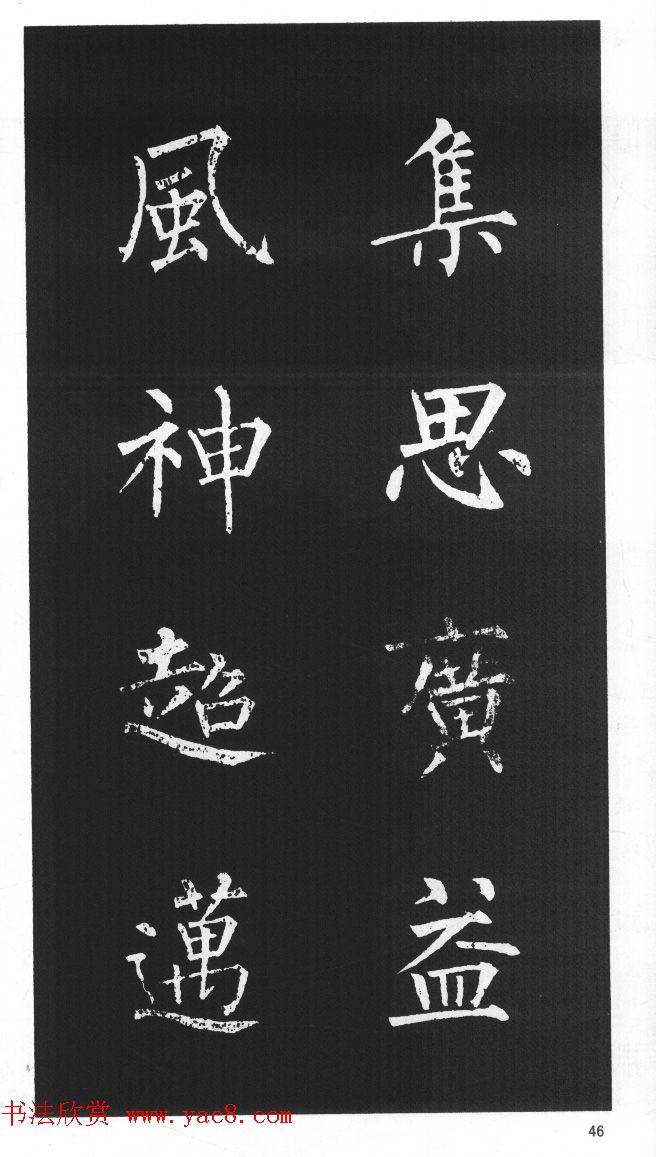 集思廣益
風神超邁
书法欣赏 www.yac8.com
46